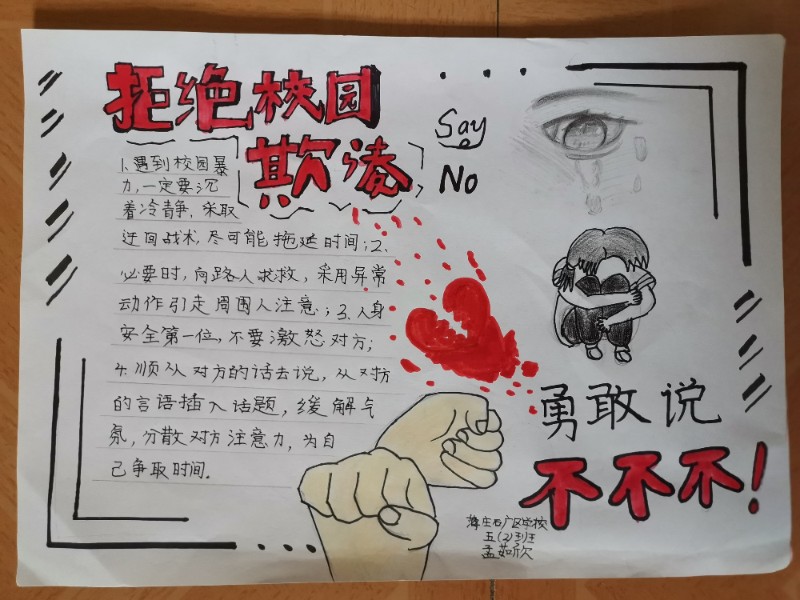 拒绝校园
欺凌
Say
No
1.遇到校园暴
力,一定要沉
着冷静,采取
迂回战术,尽可能拖延时间;2.
必要时,向路人求救,采用异常
动作引走周围人注意;3.人身
安全第一位,不要激怒对方;
4.顺从对方的话去说,从对方
的言语插入话题,缓解气
氛,分散对方注意力,为自
己争取时间.
勇敢说
不不不!
五(2)班
孟茹欣